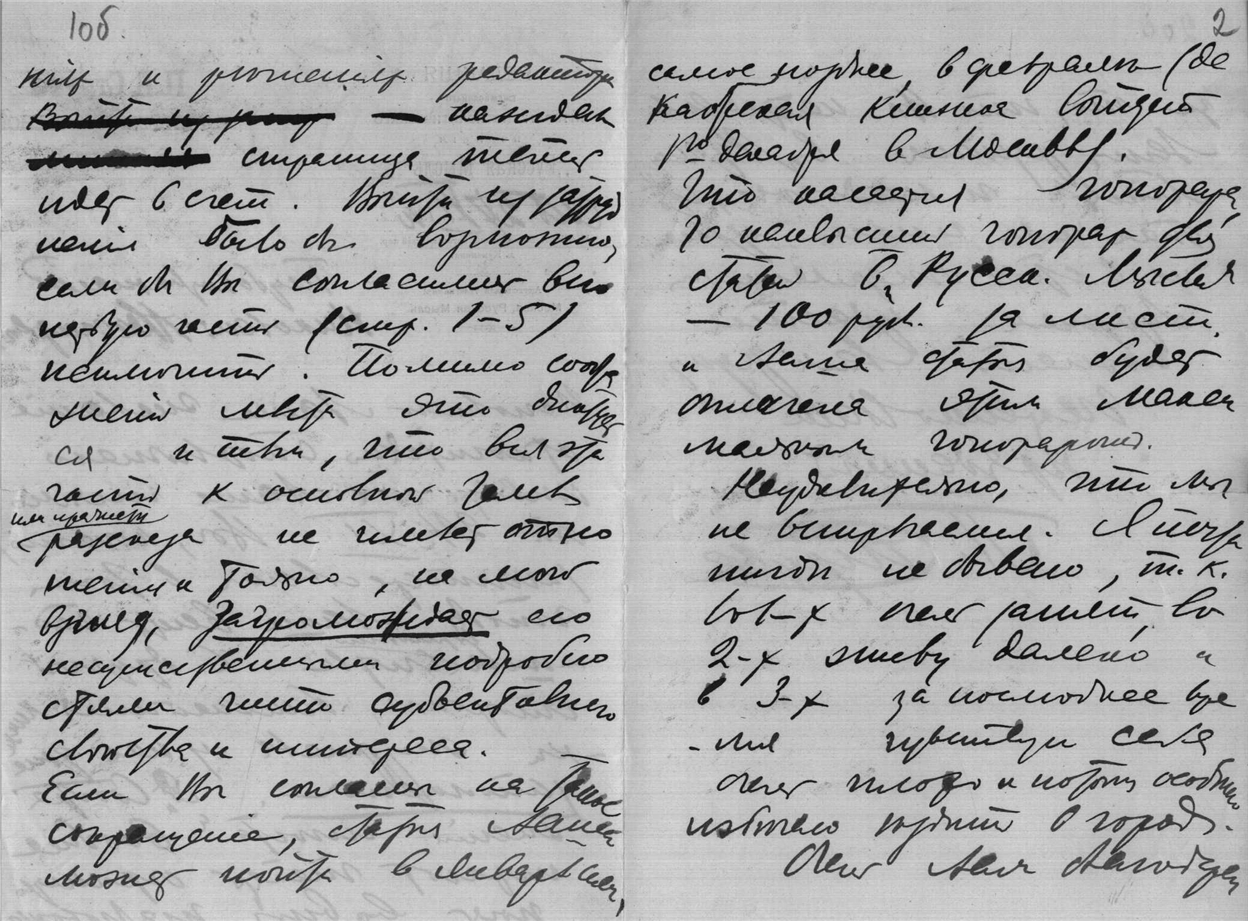 1об.
нія и рѣшенія редактора
— каждая
страница теперь
идет в счет. Выйти из затруд
ненія было бы возможно,
если бы Вы согласились всю
первую часть (стр. 1–5)
исключить. Помимо сообра
женій места это диктует
ся и тѣм, что вся эта
часть к основной теме
разсказа не имѣет отно
шенія и только, на мой
взгляд, загромождает его
несущественными подробно
стями чисто субъективнаго
свойства и интереса.
Если Вы согласны на такое
сокращеніе, статья Ваша
может пойти в январѣ или,
2
самое позднее, в февралѣ (де
кабрьская книжка выйдет
1го декабря в Москвѣ).
Что касается гонорара,
то наивысший гонорар для
статей в „Русск. Мысли"
— 100 руб. за лист,
и Ваша статья будет
оплачена этим макси
мальным гонораром.
Неудивительно, что мы
не встрѣчаемся. Я почти
нигдѣ не бываю, т. к.
во 1-х очень занят, во
2-х живу далеко и
в 3-х за последнее вре
-мя чувствую себя
очень плохо и потому особенно
избѣгаю ходить в город.
Очень Вам благодарен